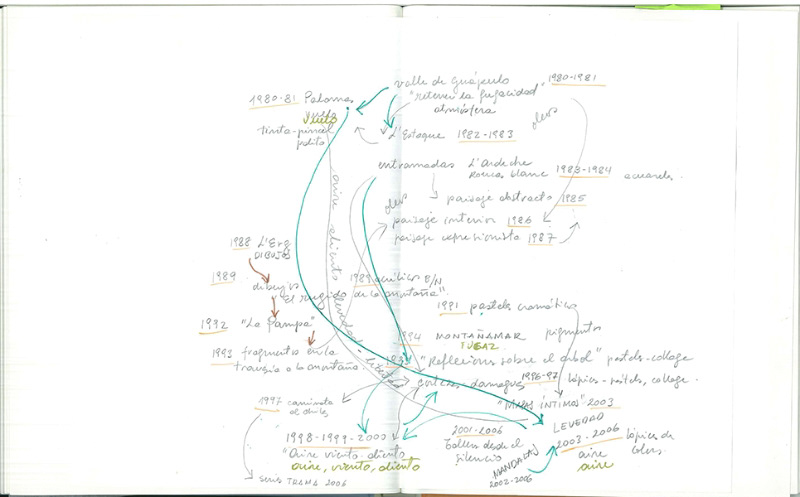 valle de Guápulo 1980-1981
"retener la fugacidad"
atmósfera
1980-81 Palomas
vuelo
vuelo
tinta-pincel
palito
L'Estaque 1982-1983
óleos
entramadas L'Ardeche
Roncas blanc 1983-1984 acuarelas.
paisaje abstracto 1985
óleos
paisaje interior 1986
paisaje expresionista 1987
aire aliento levedad-libertad
1988 L'Erg
DIBUJOS
1989 dibujos 1989 acrílicos B/N
"el rugido de la montaña"
1991 pasteles cromáticos
1992 "La Pampa"
1994 MONTAÑAMAR pigmentos
FUGAZ
1993 fragmentos en la
travesía a la montaña.
"Reflexiones sobre el árbol" pasteles-collage
cortezas-damagua 1996-97 lápices-pastels, collage.
1997 caminata
al chiles
"MAPAS ÍNTIMOS" 2003
LEVEDAD
2003-2006 lápices de
colores.
aire
aire
2001-2006
Talleres desde el
silencio
1998-1999-2000
"Aire viento aliento
aire, viento, aliento
MANDALAS
2002-2006
series TRAMA 2006